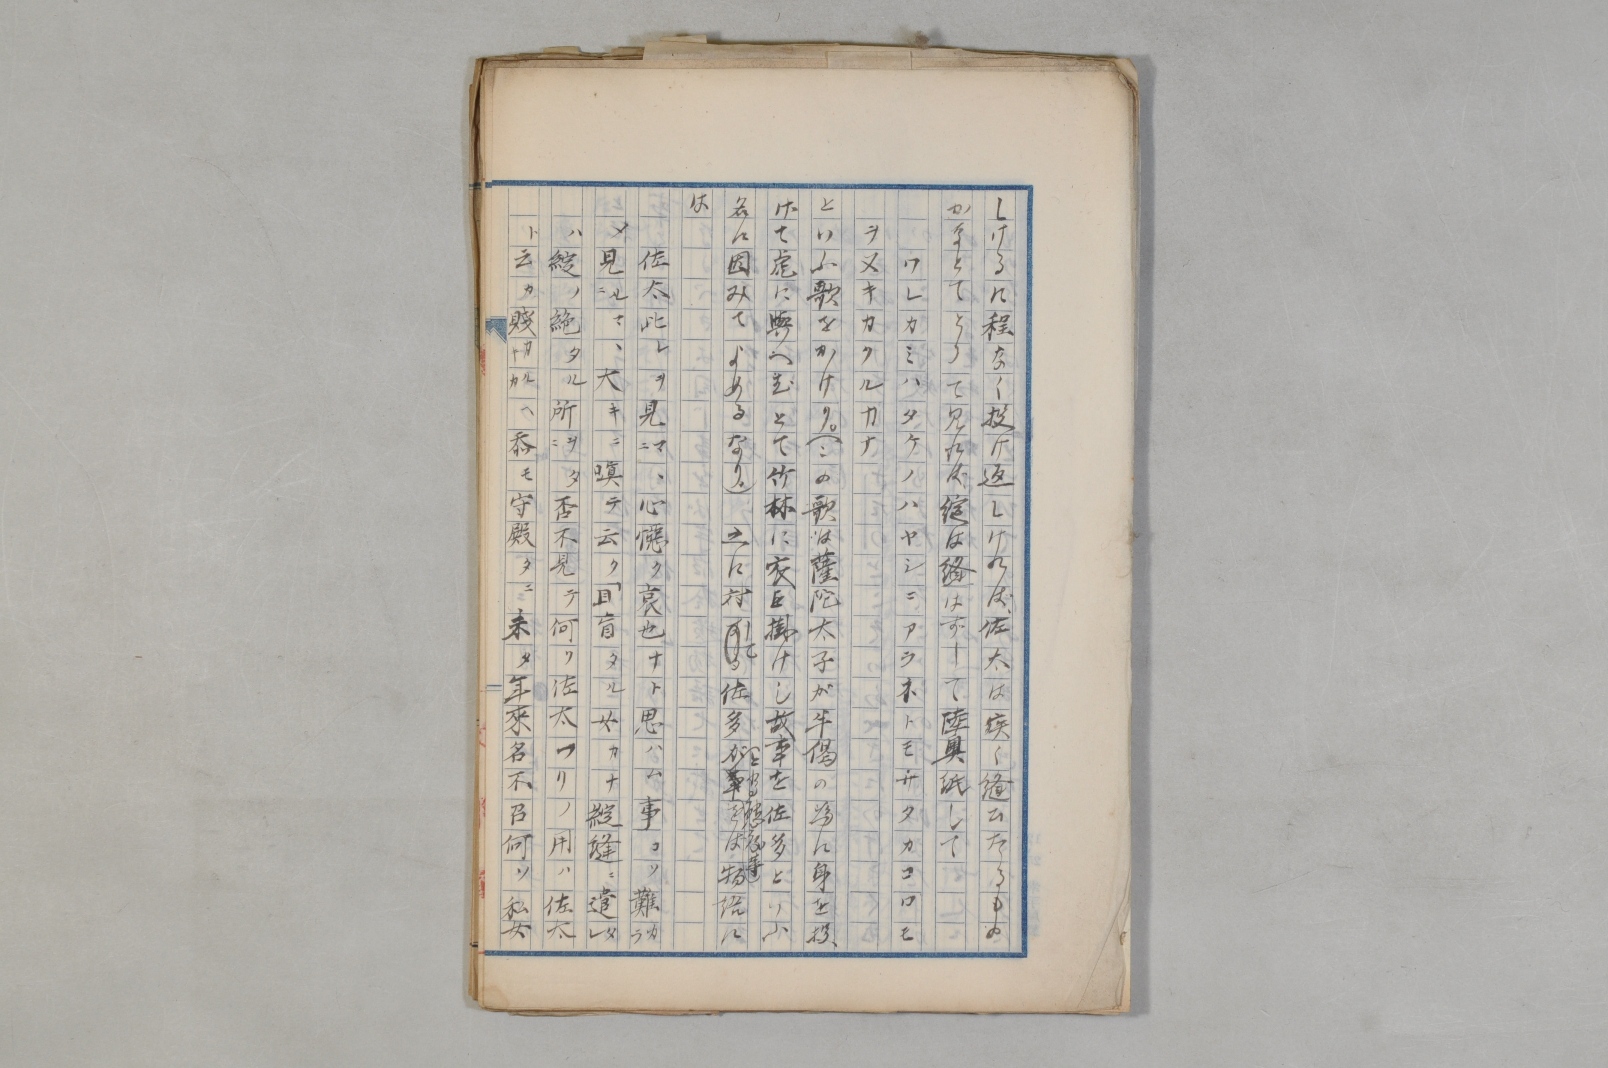 しけるに程なく投け返しけれは、佐太は疾く縫ひたるもの
かなとてとりて見れば綻は縫はずして陸奥紙して
ワレカミハタケノハヤシニアラネトモサタカコロモ
ヲヌキカクルカナ
といふ歌をかけり。(この歌は薩陀太子が半偈の為に身を投
げて虎に與へむとて竹林に衣を掛けし故事を佐多といふ
名に因みてよめるなり。)之に対して佐多が は物語に
は
佐太此レヲ見ニマヽ心㦮ク哀也ナト思ハム事コソ難カラ
メ見ルニマヽ大キニ嗔テ云ク「目盲タル女カナ綻縫ニ遣レタ
ハ綻ノ絶タル所ヲタニ否不見テ何ソ佐太ツリノ用ハ佐太
ト云カ賤カルヘトカ忝モ守殿タニ未タ年来名不召何ソ私女